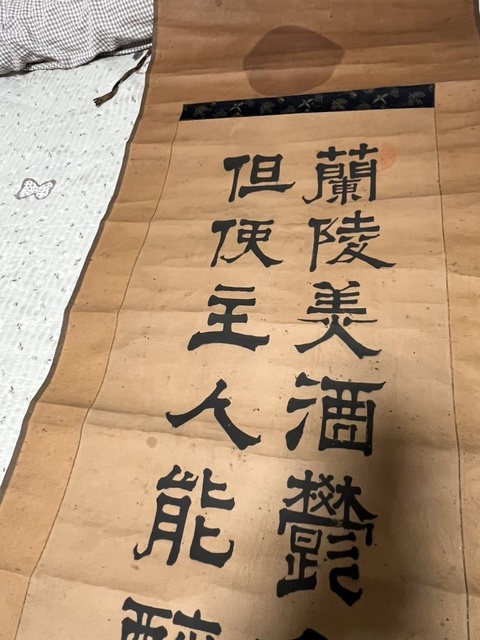 蘭陵美酒鬱
但使主人能醉